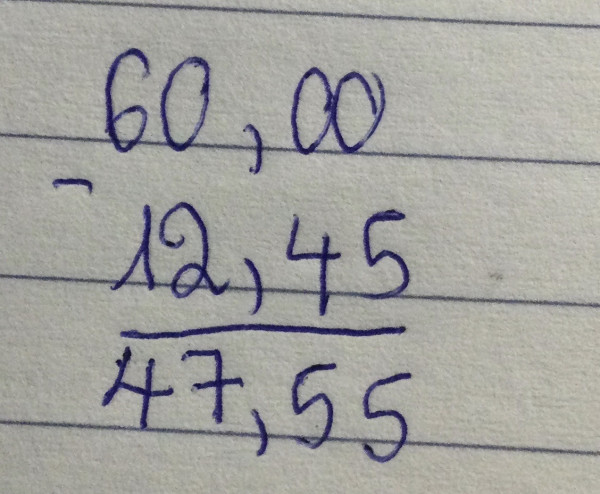 60,00
-
12,45
47,55